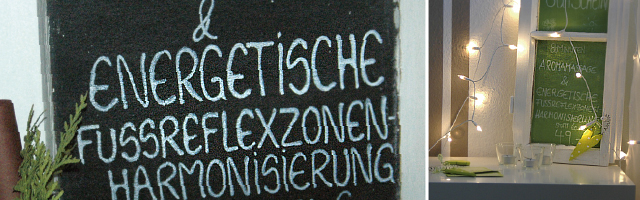 &
ENERGETISCHE
FUSSREFLEXZONEN-
HARMONISIERUNG
AROMAMASSAGE
&
ENERGETISCHE
FUSSREFLEXZONEN-
HARMONISIERUNG